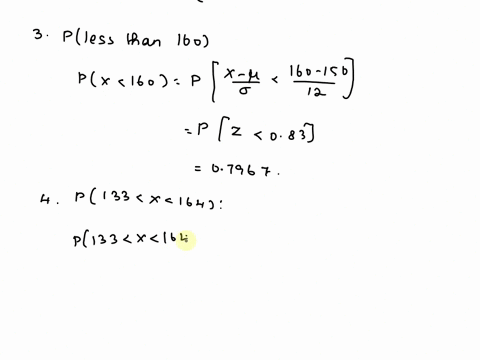 3. P(less than 160)
P(x<160) = P[x-μ/σ < 160-150/12]
= P[Z < 0.83]
= 0.7967.
4. P(133<x<164):
P(133<x<164